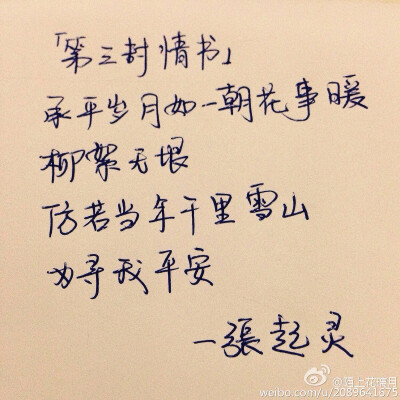 「第三封情书」
承平岁月如一朝花事暖
柳絮无垠
仿若当年千里雪山
为寻我平安
—張起灵
@陌上花情月
weibo.com/u/2089641575